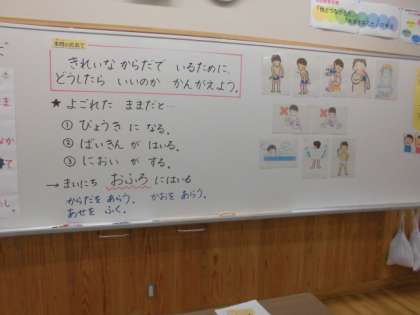 きれいな からだで いるために、
どうしたら いいのか かんがえよう。
★ よごれた ままだと…
① びょうき に なる。
② ばいきん が はいる。
③ におい が する。
→ まいにち おふろ にはいる
からだを あらう。 かおを あらう。
あせを ふく。